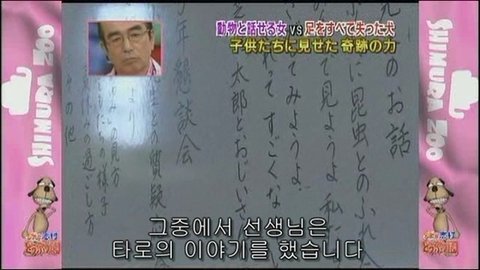 動物と話せる女 vs 足をすべて失った犬
子供たちに見せた奇跡の力
SHIMURA ZOO
SHIMURA ZOO
のお話
に昆虫とのふれ
て見ようよ 私に
てみようよ。
れってすごくな
太郎とおじいさ
年懇談会
との質疑
より
の見方
たちの様子
みの過ごし方
の他
그중에서 선생님은
타로의 이야기를 했습니다